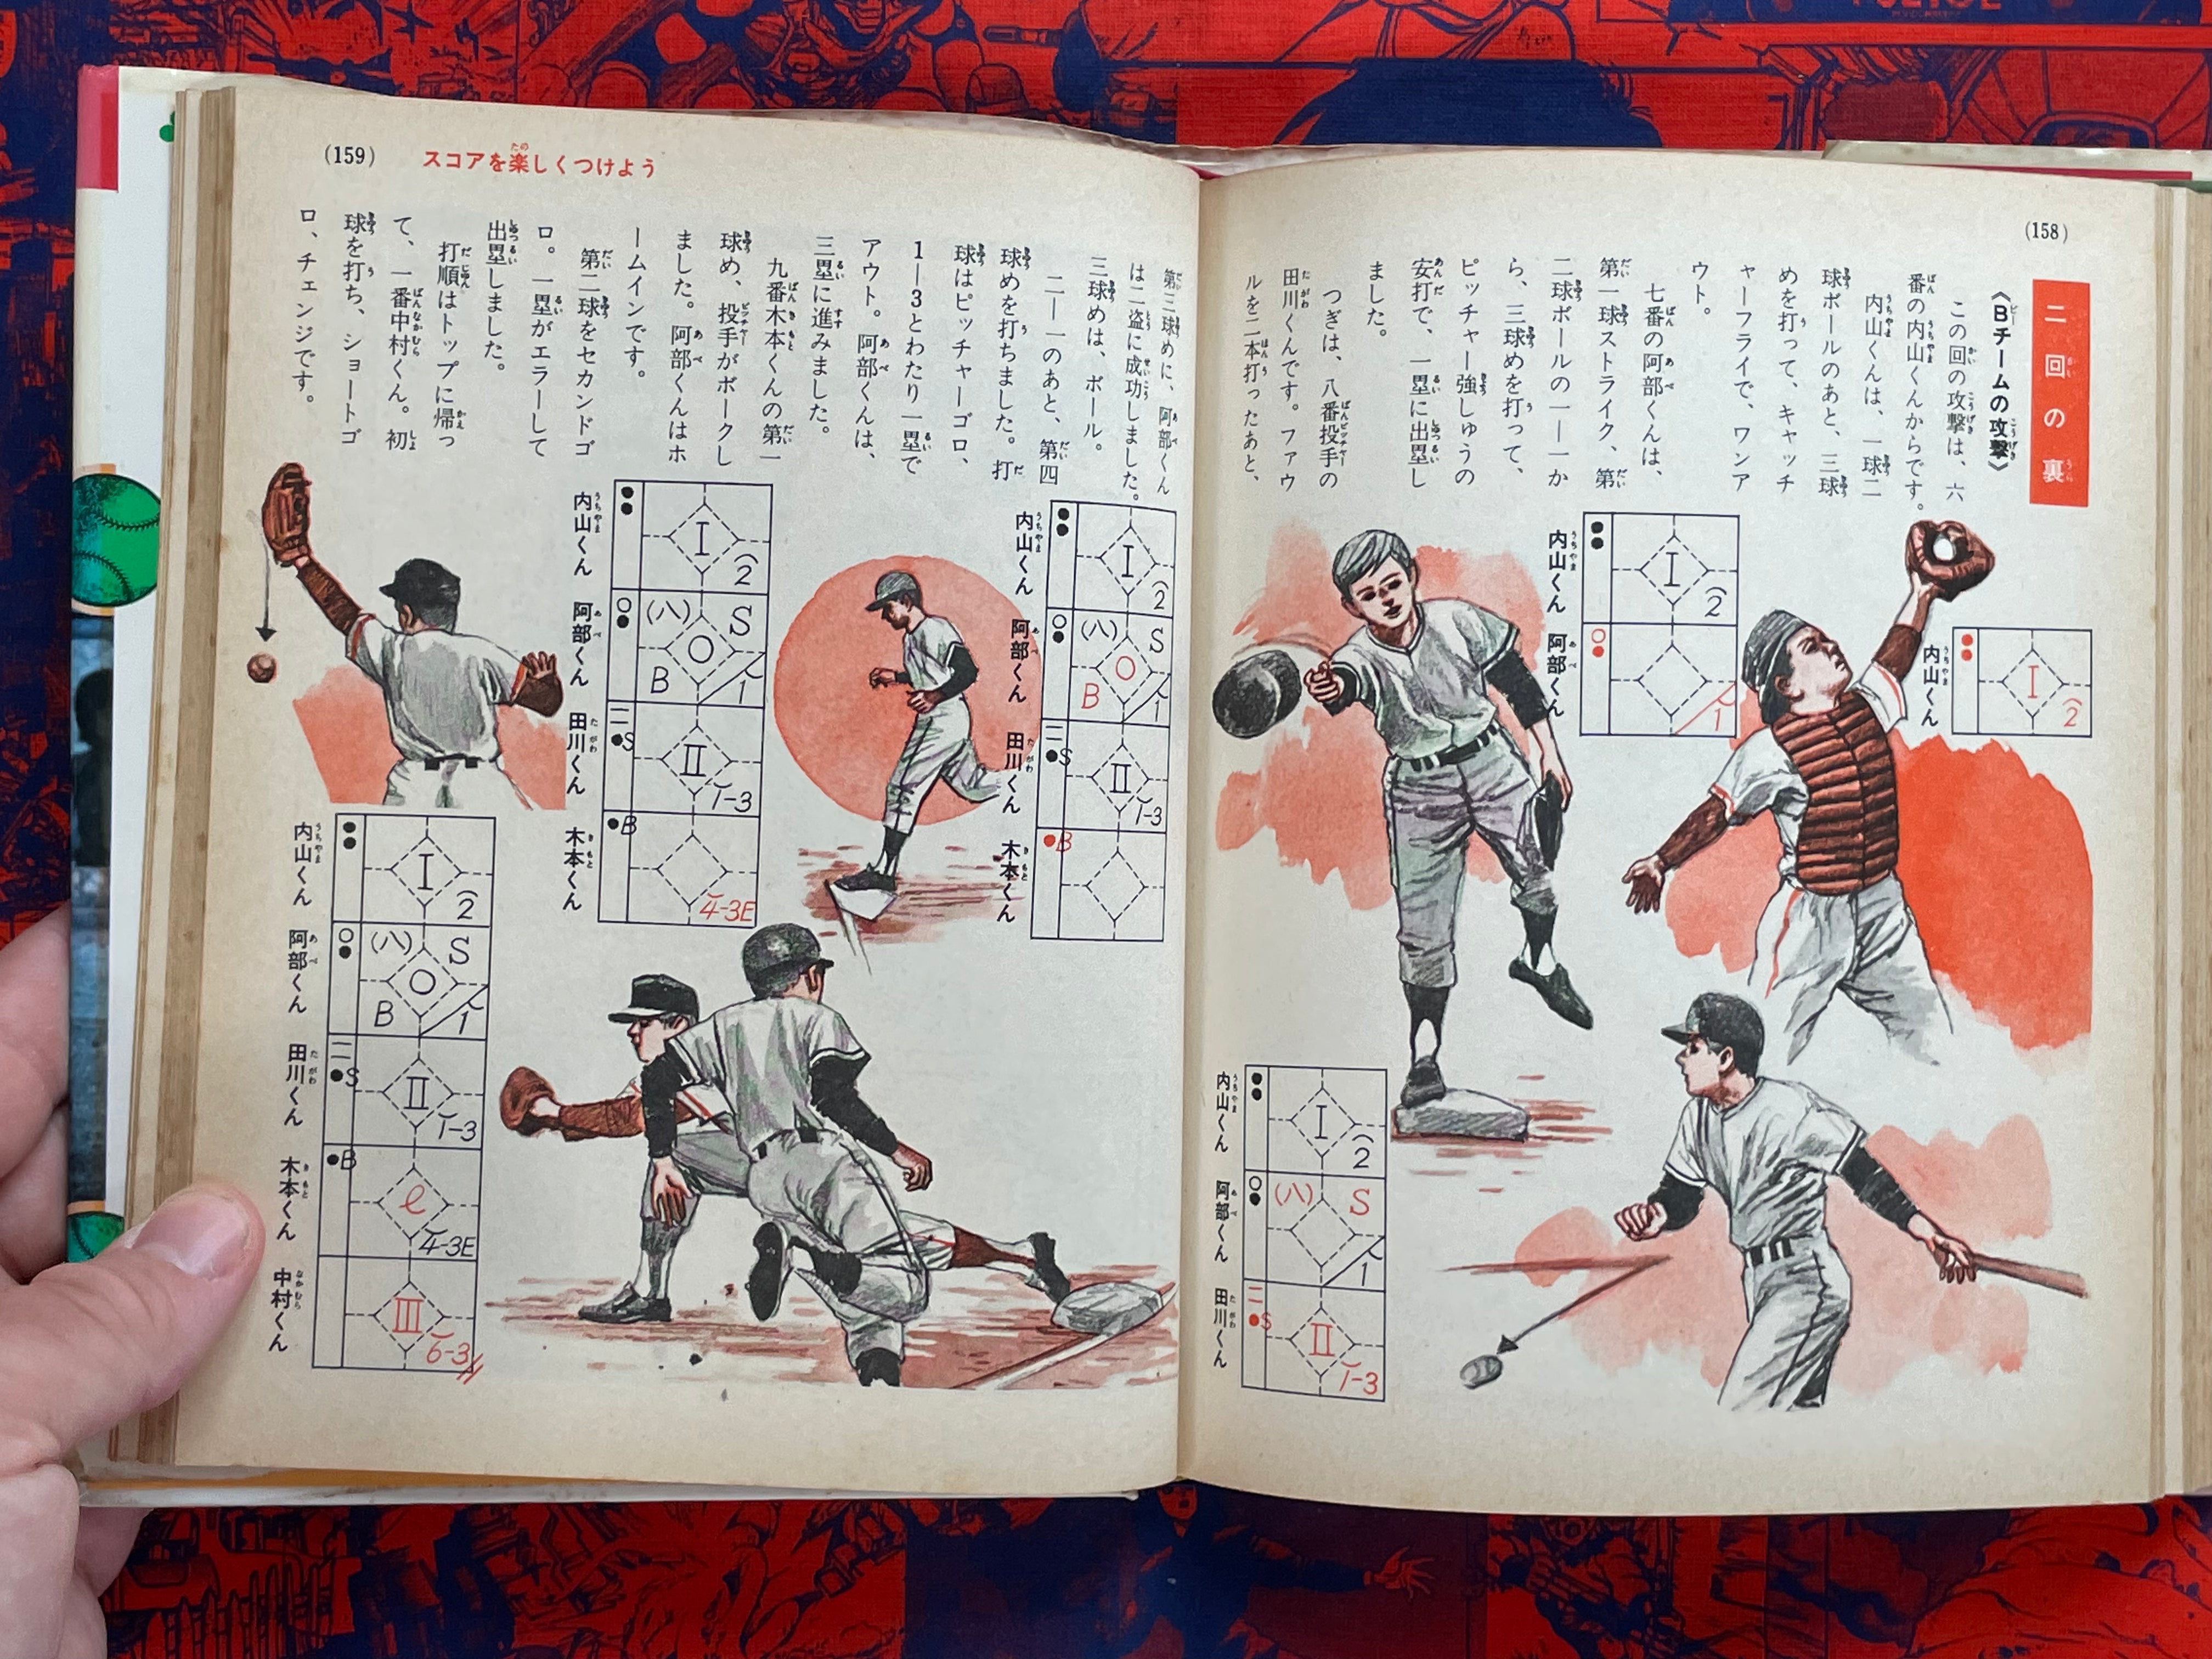 (158)
二回の裏
《Bチームの攻撃》
この回の攻撃は、六
番の内山くんからです。
内山くんは、一球二
球ボールのあと、三球
めを打って、キャッチ
ャーフライで、ワンア
ウト。
七番の阿部くんは、
第一球ストライク、第
二球ボールの一―一か
ら、三球めを打って、
ピッチャー強しゅうの
安打で、一塁に出塁し
ました。
つぎは、八番投手の
田川くんです。ファウ
ルを二本打ったあと、
内山くん
I
2
内山くん
I
2
阿部くん
1
内山くん
I
2
阿部くん
(八)
S
1
田川くん
S
II
1-3
(159)
スコアを楽しくつけよう
第三球めに、阿部くん
は二盗に成功しました。
三球めは、ボール。
二―一のあと、第四
球めを打ちました。打
球はピッチャーゴロ、
1―3とわたり一塁で
アウト。阿部くんは、
三塁に進みました。
九番木本くんの第一
球め、投手がボークし
ました。阿部くんはホ
ームインです。
第二球をセカンドゴ
ロ。一塁がエラーして
出塁しました。
打順はトップに帰っ
て、一番中村くん。初
球を打ち、ショートゴ
ロ、チェンジです。
内山くん
I
2
阿部くん
(八)
S
B
1
田川くん
S
II
1-3
木本くん
B
内山くん
I
2
阿部くん
(八)
S
B
1
田川くん
S
II
1-3
木本くん
B
4-3E
内山くん
I
2
阿部くん
(八)
S
B
1
田川くん
S
II
1-3
木本くん
B
ℓ
4-3E
中村くん
III
6-3